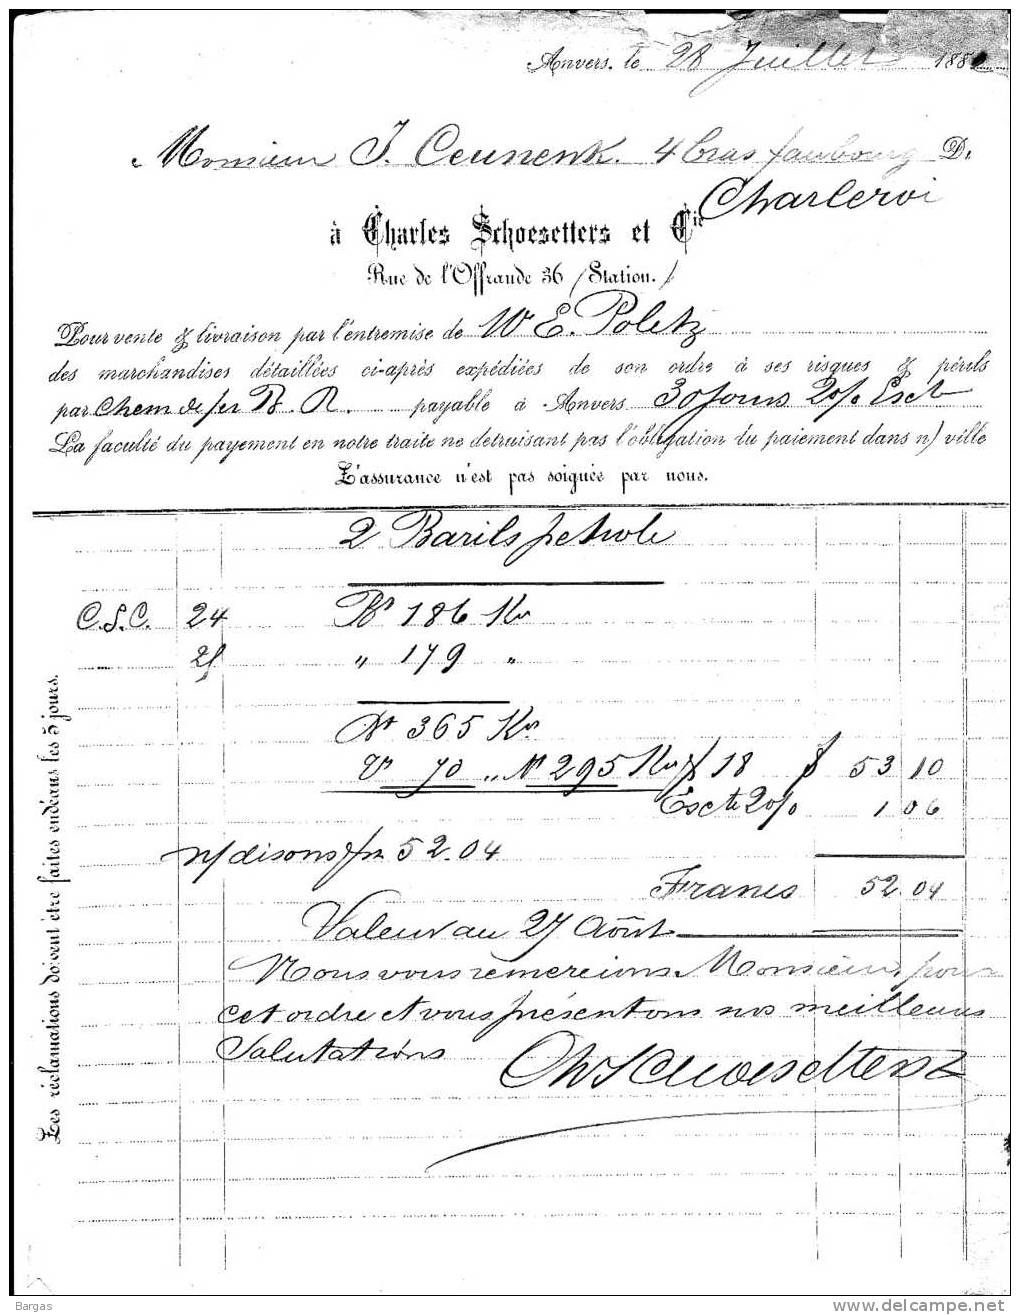 Anvers, le 28 Juillet 188
Monsieur J. Ceunenk. 4 bras faubourg D.
Charleroi
à Charles Schoesetters et Cie
Rue de l'Offrande 36 (Station.)
Pour vente & livraison par l'entremise de W E. Poletz
des marchandises détaillées ci-après expédiées de son ordre à ses risques & périls
par Chem de fer B. R. payable à Anvers 30 jours 2% Escte
La faculté du payement en notre traite ne détruisant pas l'obligation du paiement dans n/ ville
L'assurance n'est pas soignée par nous.
2 Barils petrole
C.S.C. 24 Bt 186 Ko
25 " 179 "
Bt 365 Ko
Tr 70 " Nt 295 Ko 18 f 53 10
Escte 2% 1 06
n/ disons frs 52.04
Francs 52 04
Valeur au 27 Août
Nous vous remercions Monsieur, pour
cet ordre et vous présentons nos meilleures
Salutations
Chs Schoesetters &
Les réclamations doivent être faites endéans les 5 jours.
Bargas
www.delcampe.net